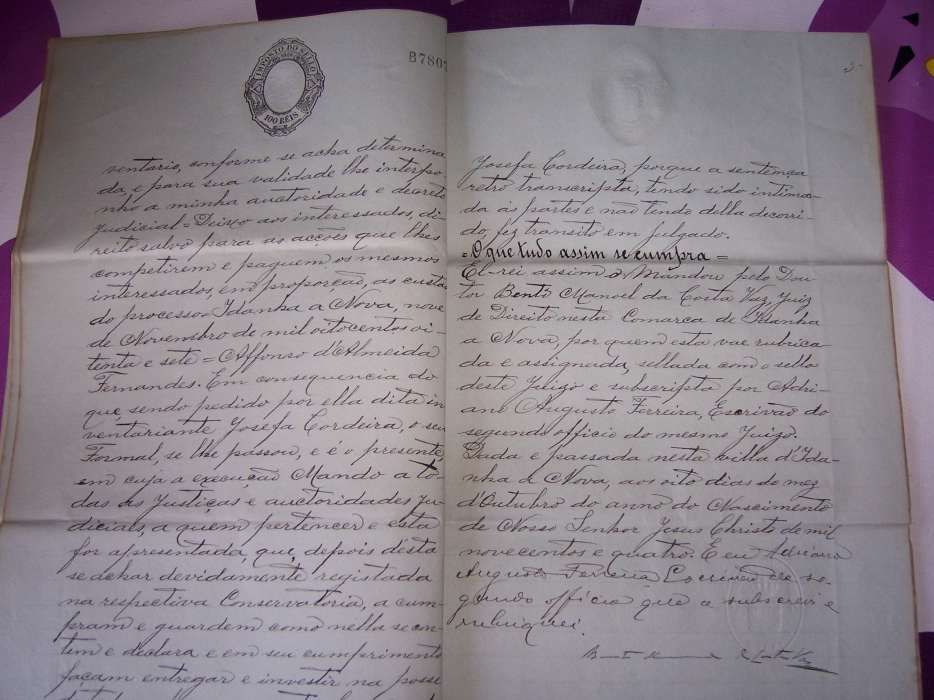 IMPOSTO DO SELLO
100 RÉIS
B7807
ventario, conforme se acha determina
da, e para sua validade lhe interpo
nho a minha auctoridade e decreto
judicial = Deixo aos interessados, di
reito salvo para as acções que lhes
competirem e paguem os mesmos
interessados, em proporção, as custas
do processo = Idanha a Nova, nove
de Novembro de mil oitocentos oi
tenta e sete = Affonso d'Almeida
Fernandes. Em consequencia do
que sendo pedido por ella dita in
ventariante Josefa Cordeira, o seu
Formal, se lhe passou, e é o presente,
em cuja a execução Mando a to-
das as Justiças e auctoridades Ju-
diciais, a quem pertencer e esta
for apresentada, que, depois désta
se achar devidamente registada
na respectiva Conservatoria, a cum
pram e guardem como nella se con-
tem e declara e em seu cumprimento
façam entregar e investir na posse
2
Josefa Cordeira, porque a sentença
retro transcripta, tendo sido intima-
da ás partes e não tendo della decorri-
do, fez transito em julgado.
= O que tudo assim se cumpra =
El-rei assim o Mandou pelo Dou
tor Bento Manoel da Costa Vaz, Juiz
de Direito nesta Comarca de Idanha
a Nova, por quem esta vae rubrica
da e assignada, sellada com o sello
deste Juizo e subscripta por Adri-
ano Augusto Ferreira, Escrivão do
segundo officio do mesmo Juizo.
Dada e passada nesta villa d'Ida-
nha a Nova, aos oito dias do mez
d'Outubro do anno do Nascimento
de Nosso Senhor Jesus Christo de mil
novecentos e quatro. E eu Adriano
Augusto Ferreira Escrivão do se-
gundo officio que a subscrevi e
rubriquei.